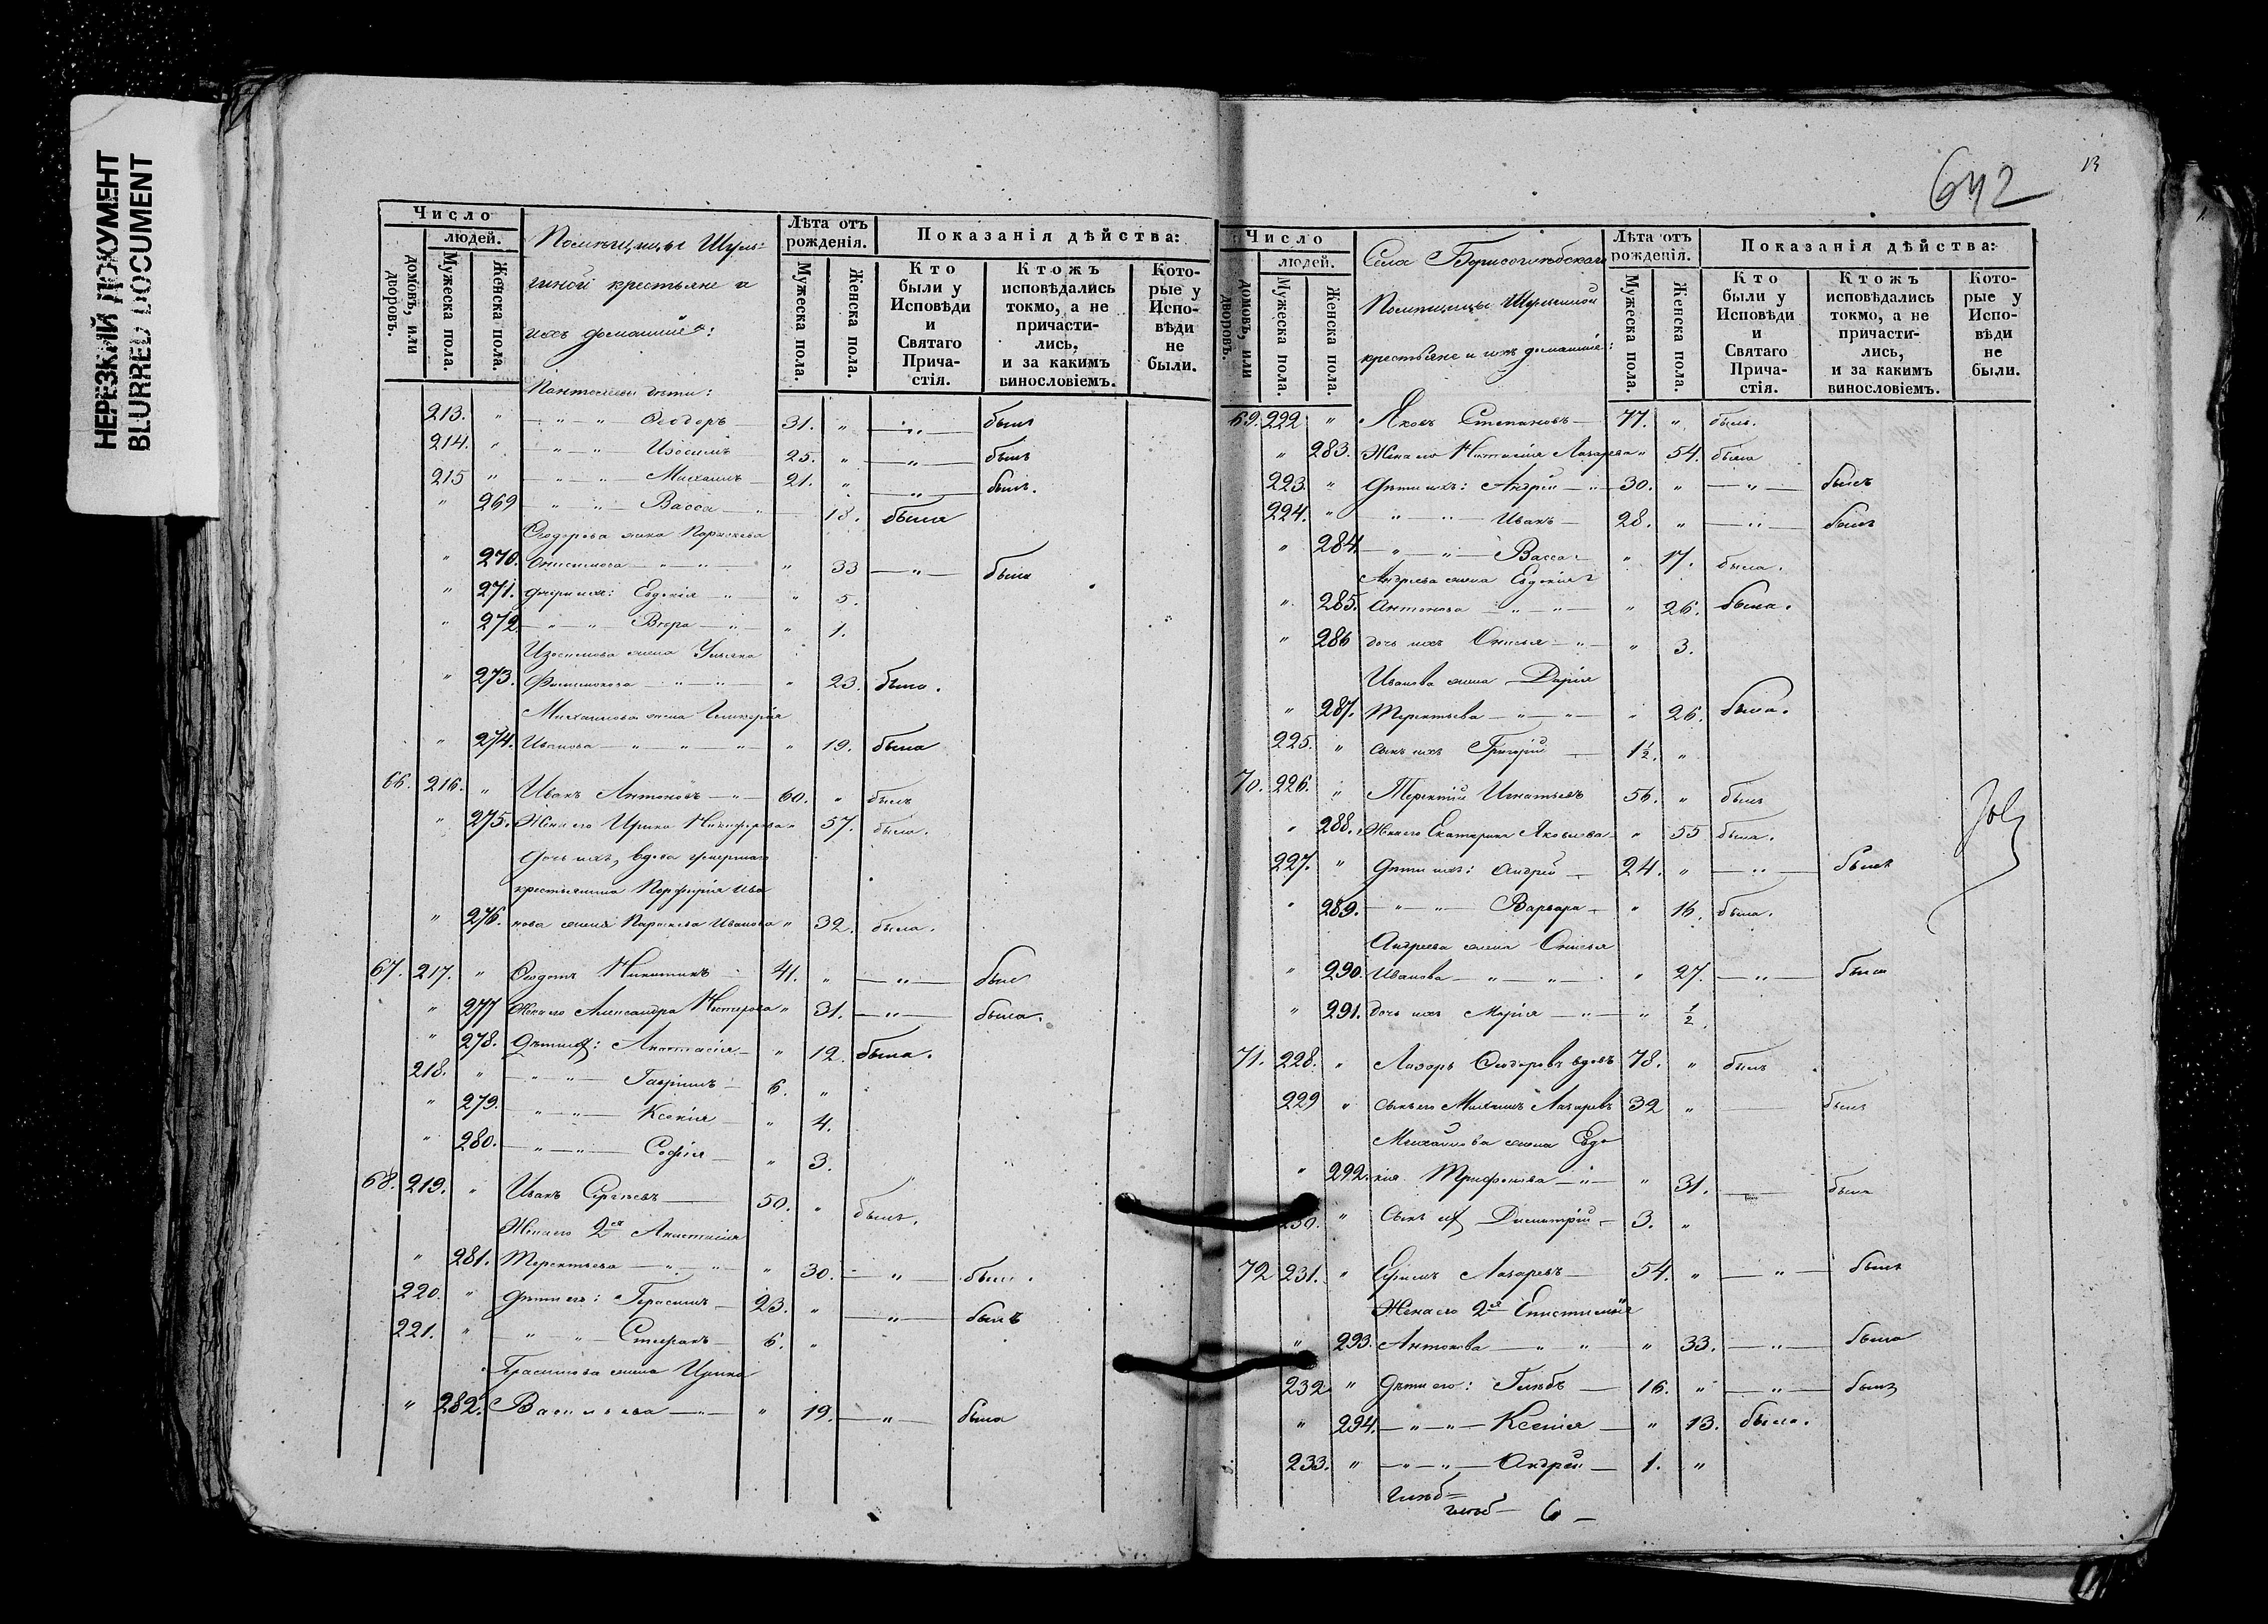 НЕРЕЗКИЙ ДОКУМЕНТ
BLURRED DOCUMENT
Число
людей.
домовъ, или дворовъ.
Мужеска пола.
Женска пола.
Помѣщицы Шуль-
гиной крестьяне и
ихъ домашнiе:
Лѣта отъ рожденія.
Мужеска пола.
Женска пола.
Показанія дѣйства:
Кто были у Исповѣди и Святаго Прича-стія.
Ктожъ исповѣдались токмо, а не причасти-лись, и за какимъ винословіемъ.
Кото-рые у Испо-вѣди не были.
дѣти:
213. " " " Ѳеодоръ 31. " " былъ
214. " " " Изосимъ 25. " " былъ
215 " " " Михаилъ 21. " " былъ.
" 269 " " Васса " 18. была
Ѳеодорова жена Параскева
" 270. Онисимова " " " 33 " была
" 271. дочери ихъ: Евдокія " " 5.
" 272. " " Вѣра " " 1.
Изосимова жена Ульяна
" 273. Филимонова " " " 23. была.
Михаилова жена Гликерія
" 274. Иванова " " " " 19. была
66. 216. " Иванъ Антоновъ " 60. " былъ
" 275. Жена его Ирина Никифорова " 57. была.
Дочь ихъ, вдова умершаго
крестьянина Порфирія Ива
" 276. нова жена Параскева Иванова " 32. была.
67. 217. " Ѳедотъ Никитинъ 41. " " был
" 277 Жена его Александра Нестерова " 31. " была.
" 278. Дѣти ихъ: Анастасія " 12. была.
218. " " " Гавріилъ 6. "
" 279. " " Ксенія " 4.
" 280. " " Софія " 3.
68. 219. " Иванъ Сергѣевъ 50. " былъ.
Жена его 2я Анастасія
" 281. Терентьева " " " 30. " была.
220. " Дѣти его: Герасимъ 23. " " былъ
221. " " " Стефанъ 6. "
Герасимова жена Ирина
" 282. Васильева " " 19. " была
642
13
Число
людей.
домовъ, или дворовъ.
Мужеска пола.
Женска пола.
Села Борисоглѣбскаго
Помѣщицы Шульгиной
крестьяне и ихъ домашніе:
Лѣта отъ рожденія.
Мужеска пола.
Женска пола.
Показанія дѣйства:
Кто были у Исповѣди и Святаго Прича-стія.
Ктожъ исповѣдались токмо, а не причасти-лись, и за какимъ винословіемъ.
Кото-рые у Испо-вѣди не были.
69. 222 " Яковъ Степановъ 77. " былъ.
" 283. Жена его Наталія Лазарева " 54. была
223. " Дѣти ихъ: Андрей " 30. " " былъ
224. " " " Иванъ 28. " " былъ
" 284. " " Васса " 17. была.
Андреева жена Евдокія
" 285. Антонова " " " 26. была.
" 286 дочь ихъ Онисья " " 3.
Иванова жена Дарія
" 287. Терентьева " " " 26. была.
225. " Сынъ ихъ Григорій 1½. "
70. 226. " Терентій Игнатьевъ 56. " былъ
" 288. Жена его Екатерина Яковлева " 55 была.
227. " Дѣти ихъ: Андрей 24. " " былъ
" 289. " " Варвара " 16. была.
Андреева жена Онисья
" 290. Иванова " " " 27. " была
" 291. дочь ихъ Марія " " ½.
71. 228. " Лазарь Ѳеодоровъ вдовъ 78. " былъ
229 " Сынъ его Михаилъ Лазаревъ 32 " былъ
Михайлова жена Евдо
" 292. кія Трифонова " " 31. была
230. " Сынъ ихъ Димитрій 3. "
72 231. " Ефимъ Лазаревъ 54. " " былъ
Жена его 2я Епистимія
" 293. Антонова " " " 33. " была
232. " Дѣти его: Глѣбъ 16. " " былъ
" 294. " " Ксенія " 13. была.
233. " " " Андрей 1. "
6